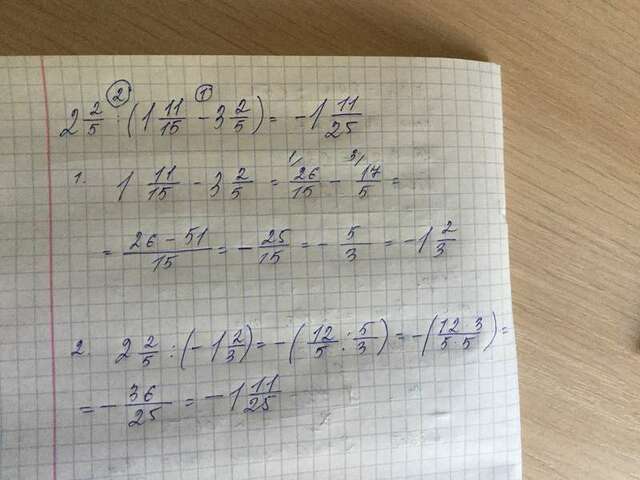 2 2/5 : (1 11/15 - 3 2/5) = -1 11/25
② ①
1. 1 11/15 - 3 2/5 = 26/15 - 17/5 =
1/ 3/
= (26 - 51)/15 = - 25/15 = - 5/3 = -1 2/3
2. 2 2/5 : (-1 2/3) = -(12/5 : 5/3) = -((12 · 3)/(5 · 5)) =
= - 36/25 = -1 11/25